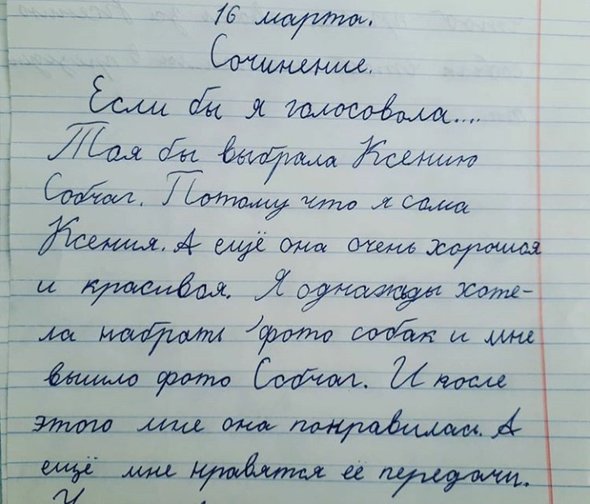 16 марта.
Сочинение.
Если бы я голосовола....
Тоя бы выбрала Ксению
Собчаг. Потому что я сама
Ксения. А ещё она очень хорошая
и красивая. Я однажды хоте-
ла набрать фото собак и мне
вышло фото Собчаг. И после
этого мне она понравилась. А
ещё мне нравятся её передачи.